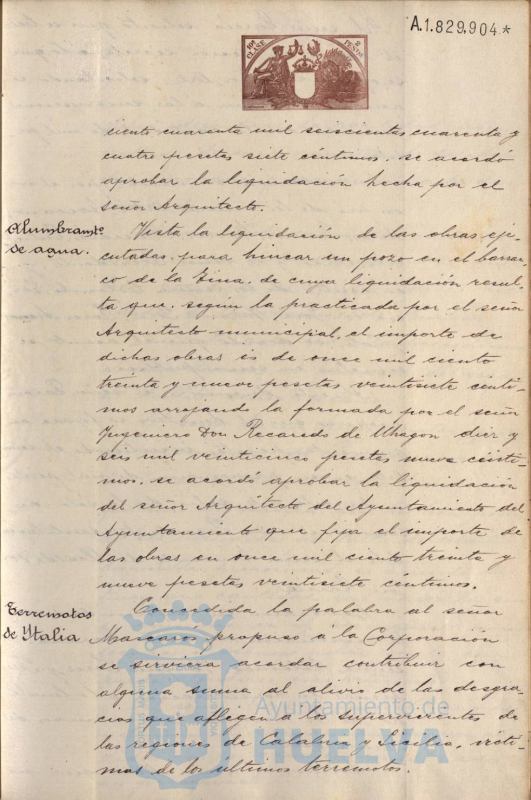 A.1.829,904.*
10ª CLASE
2 PESETAS
ciento cuarenta mil seiscientas cuarenta y
cuatro pesetas siete céntimos. se acordó
aprobar la liquidación hecha por el
señor Arquitecto.
Alumbramto.
de agua.
Vista la liquidación de las obras eje-
cutadas para hincar un pozo en el barran-
co de la Zina. de cuya liquidación resul-
ta que. según la practicada por el señor
Arquitecto municipal, el importe de
dichas obras es de once mil ciento
treinta y nueve pesetas veintisiete cénti-
mos arrojando la formada por el señor
Ingeniero Don Recaredo de Uhagon diez y
seis mil veinticinco pesetas nueve cénti-
mos. se acordó aprobar la liquidación
del señor Arquitecto del Ayuntamiento del
Ayuntamiento que fija el importe de
las obras en once mil ciento treinta y
nueve pesetas veintisiete céntimos.
Terremotos
de Ytalia
Concedida la palabra al señor
Mascarós propuso á la Corporación
se sirviera acordar contribuir con
alguna suma al alivio de las desgra-
cias que afligen a los supervivientes de
las regiones de Calabria y Sicilia, vícti-
mas de los últimos terremotos.
Ayuntamiento de
HUELVA